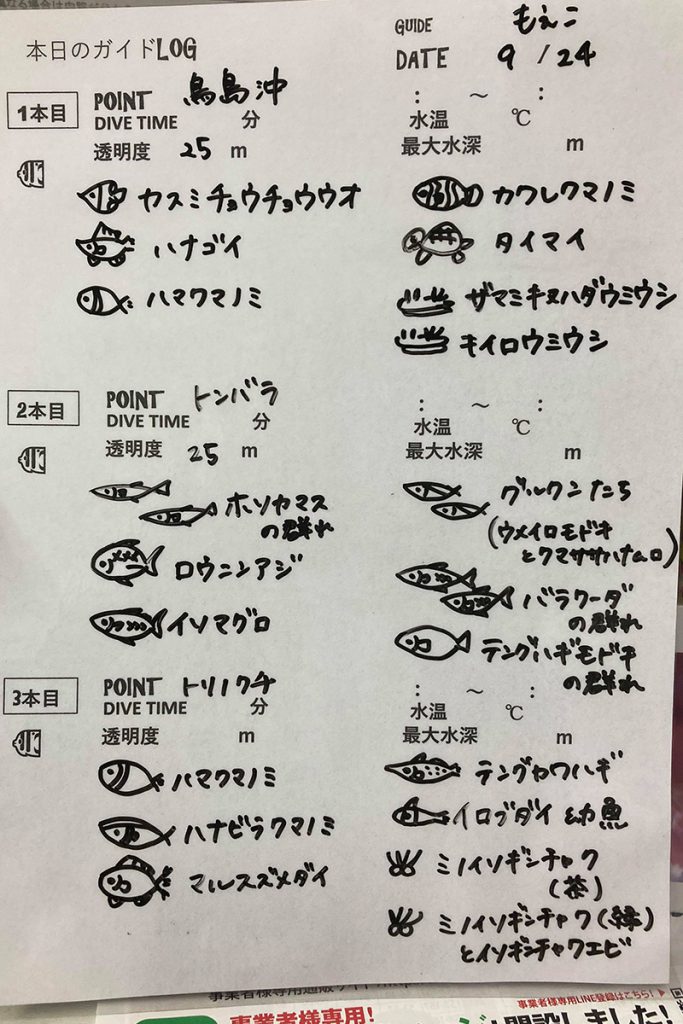 本日のガイドLOG
GUIDE もえこ
DATE 9/24
1本目
POINT 鳥島沖
DIVE TIME 分
透明度 25 m
: ～ :
水温 ℃
最大水深 m
ヤスミチョウチョウウオ
ハナゴイ
ハマクマノミ
カクレクマノミ
タイマイ
ザマミキヌハダウミウシ
キイロウミウシ
2本目
POINT トンバラ
DIVE TIME 分
透明度 25 m
: ～ :
水温 ℃
最大水深 m
ホソカマス
の群れ
ロウニンアジ
イソマグロ
グルクンたち
(ウメイロモドキ
とクマササハナムロ)
バラクーダ
の群れ
テングハギモドキ
の群れ
3本目
POINT トリノクチ
DIVE TIME 分
透明度 m
: ～ :
水温 ℃
最大水深 m
ハマクマノミ
ハナビラクマノミ
マルスズメダイ
テングカワハギ
イロブダイ幼魚
ミノイソギンチャク
(茶)
ミノイソギンチャク(緑)
とイソギンチャクエビ
事業者様専用!
事業者様専用LINE登録はこちら!
開設しました!